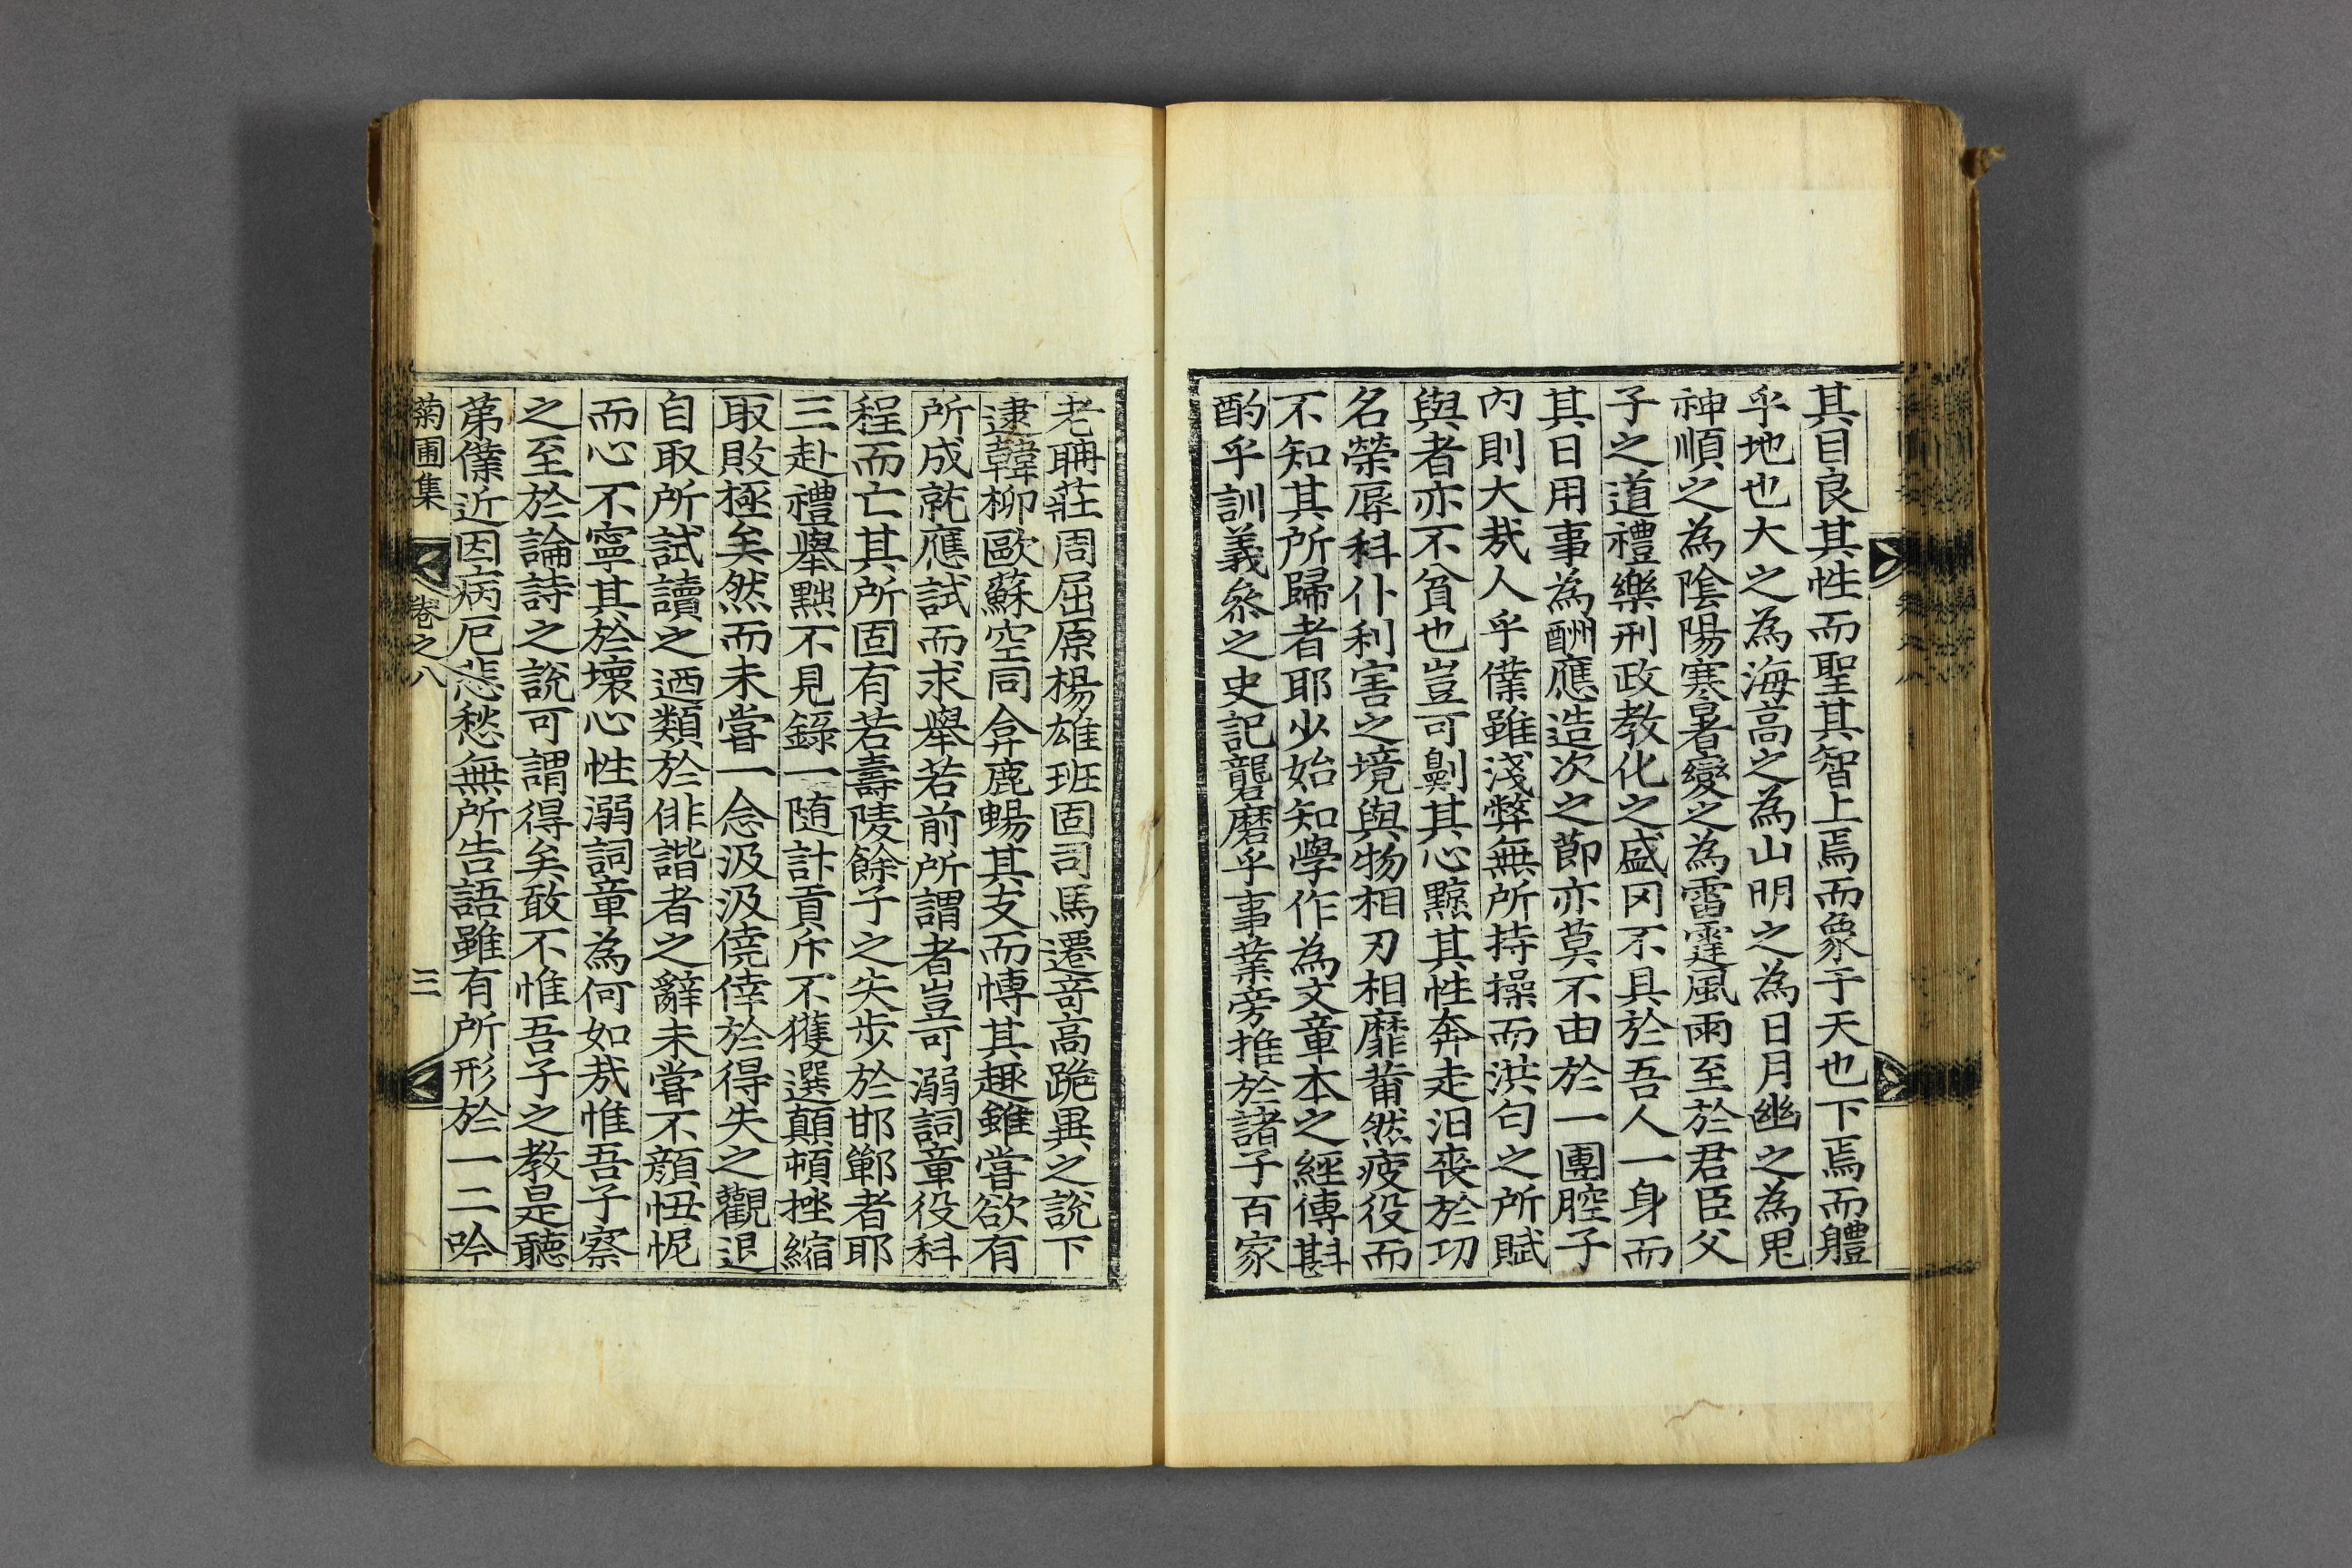 其目良其性而聖其智上焉而象于天也下焉而軆
乎地也大之為海高之為山明之為日月幽之為鬼
神順之為陰陽寒暑變之為雷霆風雨至於君臣父
子之道禮樂刑政教化之盛罔不具於吾人一身而
其日用事為酬應造次之節亦莫不由於一團腔子
內則大㢤人乎僕雖淺弊無所持操而洪匀之所賦
與者亦不貧也豈可劓其心黥其性奔走汨喪於功
名榮辱科仆利害之境與物相刃相靡薾然疲役而
不知其所歸者耶少始知學作為文章本之經傳斟
酌乎訓義叅之史記礱磨乎事業旁推於諸子百家
老聃莊周屈原楊雄班固司馬遷竒高詭異之說下
逮韓柳歐蘇空同弇鹿蜴其支而慱其趣雖嘗欲有
所成就應試而求舉若前所謂者豈可溺詞章役科
程而亡其所固有若壽陵餘子之失步於邯鄲者耶
三赴禮舉黜不見錄一随計貢斥不獲選顛頓挫縮
取敗極矣然而未嘗一念汲汲僥倖於得失之觀退
自取所試讀之迺類於俳諧者之辭未嘗不顔忸怩
而心不寧其於壞心性溺詞章為何如㢤惟吾子察
之至於論詩之說可謂得矣敢不惟吾子之教是聽
苐僕近因病厄悲愁無所告語雖有所形於一二吟
菊圃集 卷之八 三